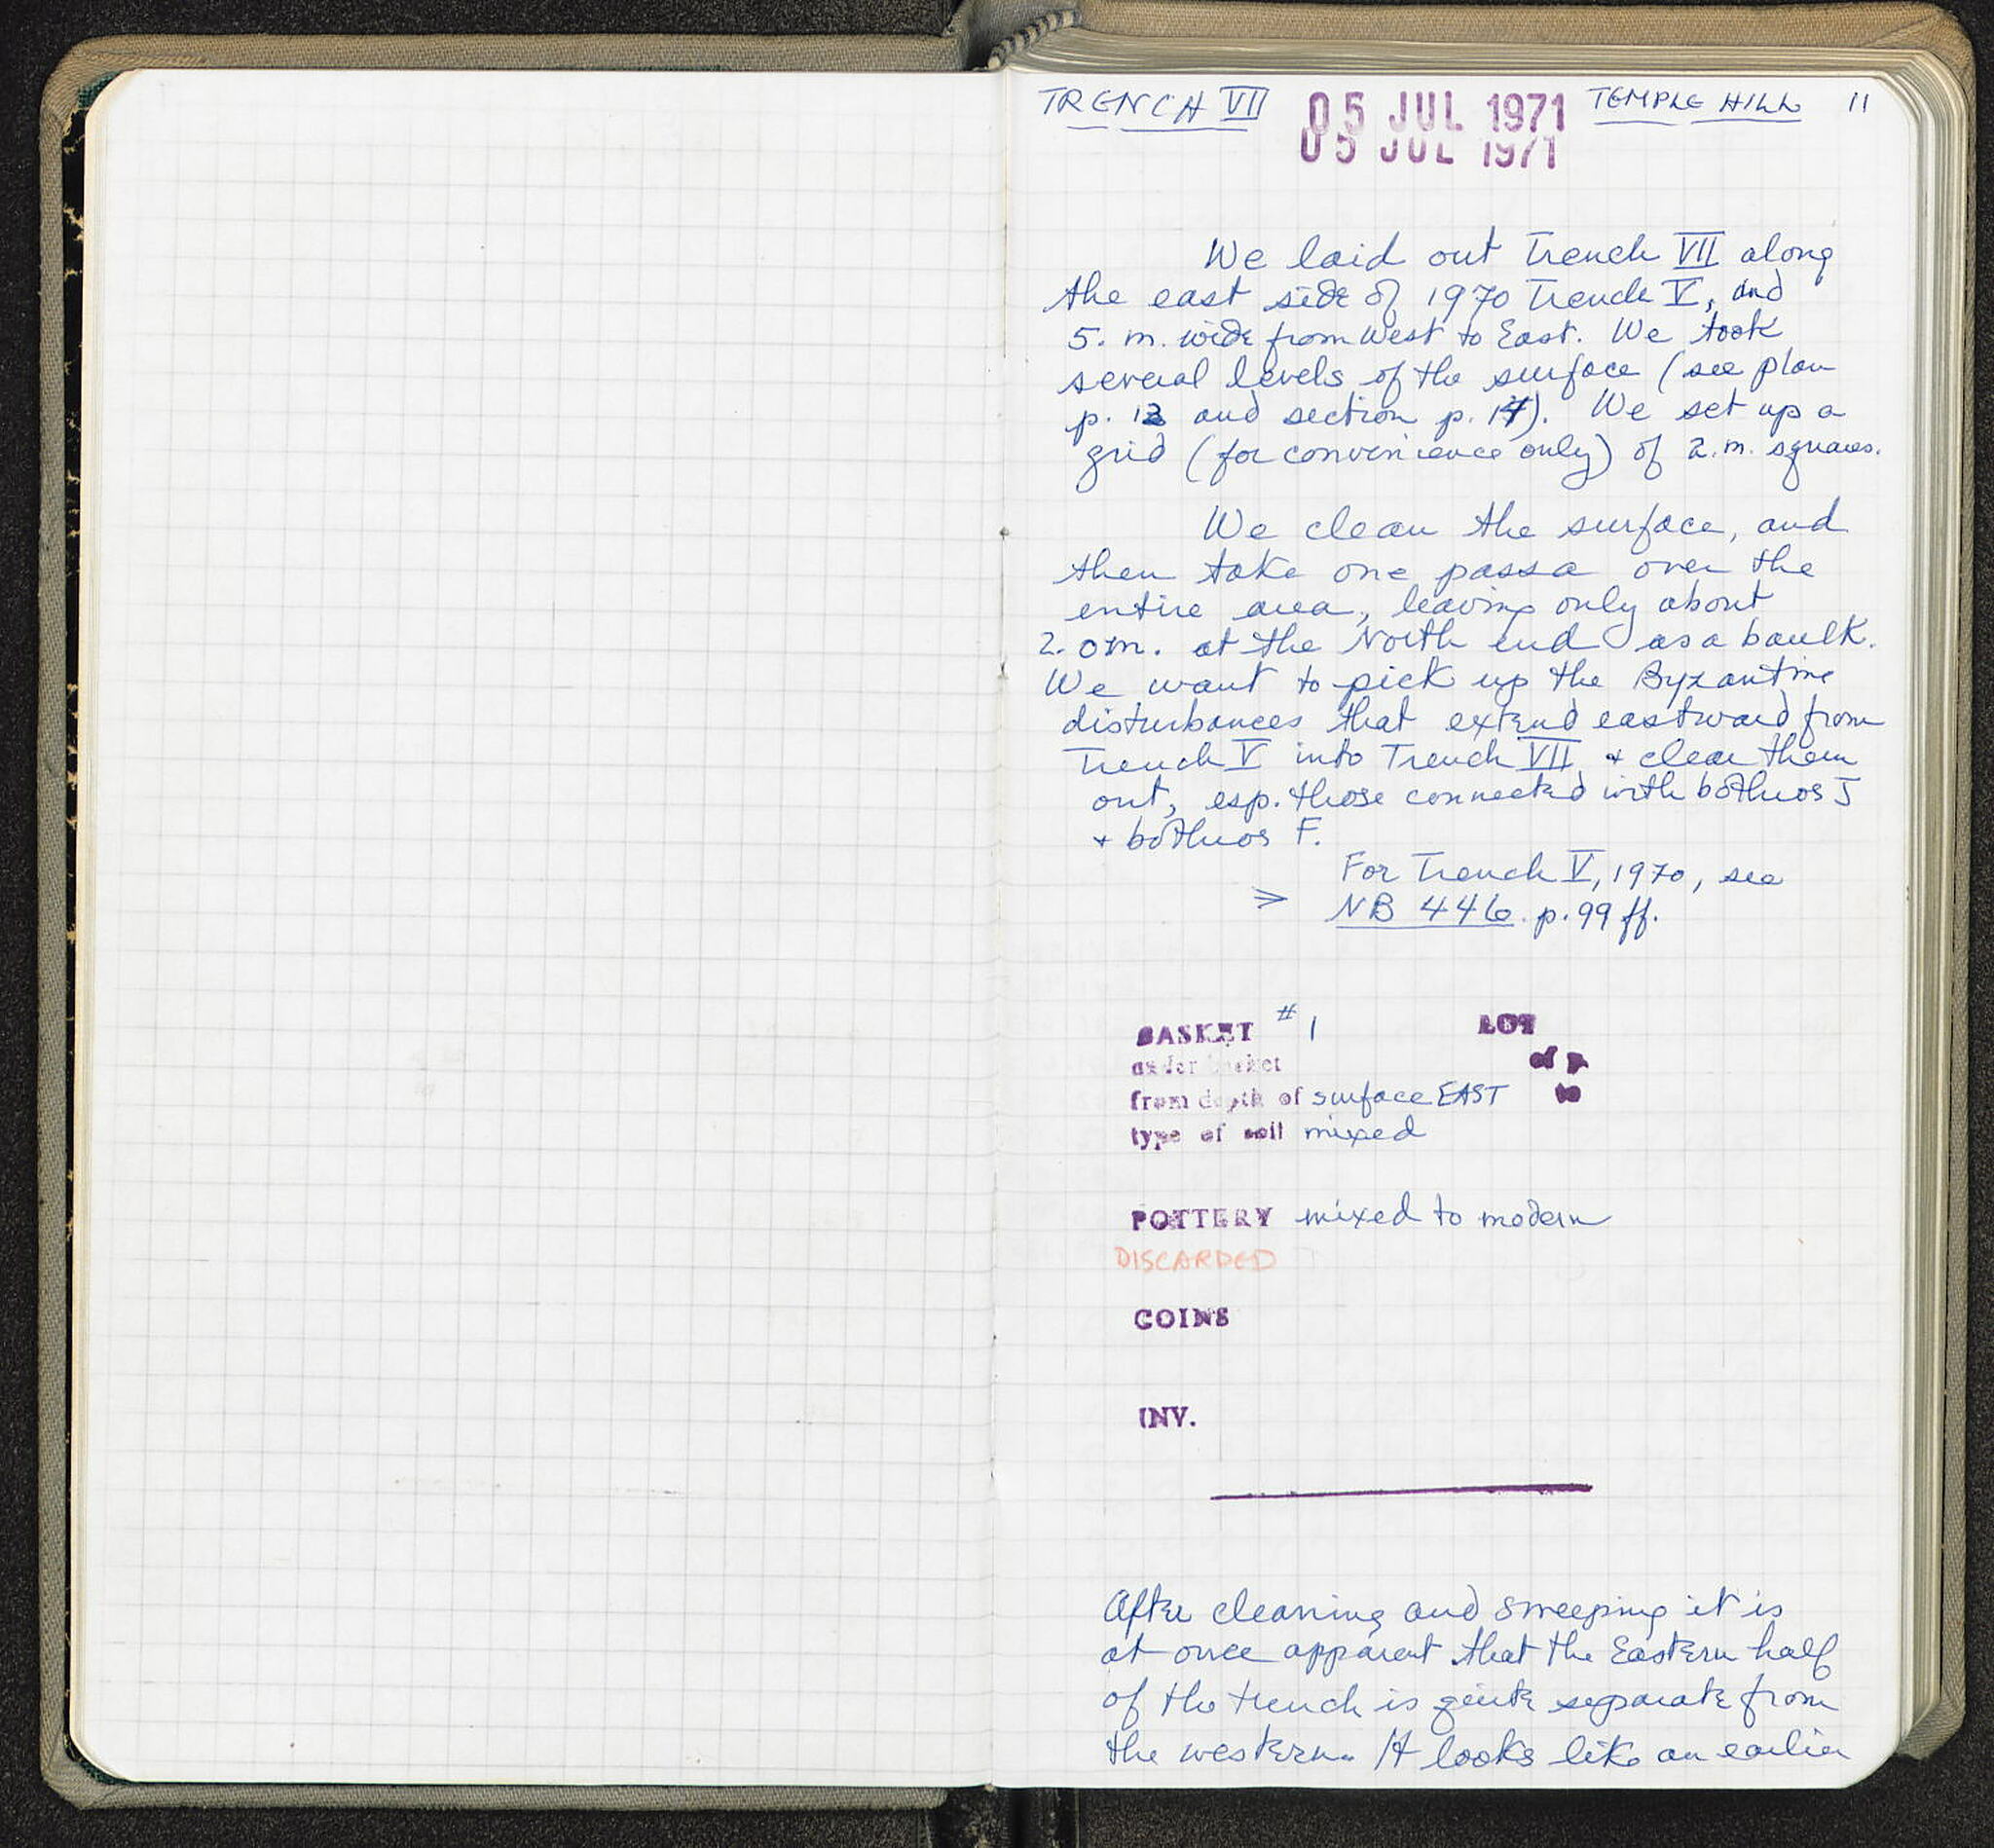 TRENCH VII 05 JUL 1971 TEMPLE HILL 11
05 JUL 1971
We laid out Trench VII along
the east side of 1970 Trench V, and
5. m. wide from West to East. We took
several levels of the surface (see plan
p. and section p. ). We set up a
grid (for convenience only) of 2.m. squares.
We clean the surface, and
then take one passa over the
entire area, leaving only about
2.0m. at the North end as a baulk.
We want to pick up the Byzantine
disturbances that extend eastward from
Trench V into Trench VII + clear them
out, esp. those connected with bothros J
+ bothros F.
For Trench V, 1970, see
⇒ NB 446 p. 99 ff.
BASKET # 1 LOT
under basket of p.
from depth of surface EAST to
type of soil mixed
POTTERY mixed to modern
DISCARDED
COINS
INV.
After cleaning and sweeping it is
at once apparent that the Eastern half
of the trench is quite separate from
the western. It looks like an earlier